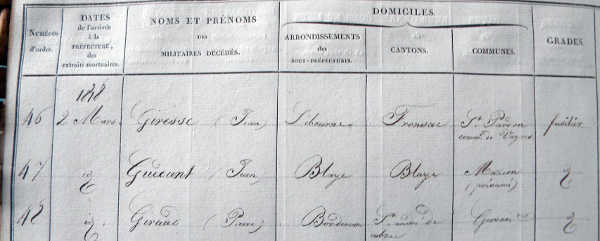 Numéros d'ordre.
DATES de l'arrivée à la PRÉFECTURE, des extraits mortuaires.
NOMS ET PRÉNOMS DES MILITAIRES DÉCÉDÉS.
DOMICILES.
ARRONDISSEMENTS des SOUS-PRÉFECTURES.
CANTONS.
COMMUNES.
GRADES.
46 2 Mars Giresse (Jean) Libourne Fronsac St fusilier
47 id Guicant (Jean) Blaye Blaye id
48 id Giraud (Pierre) Bordeaux St andré de cubzac id